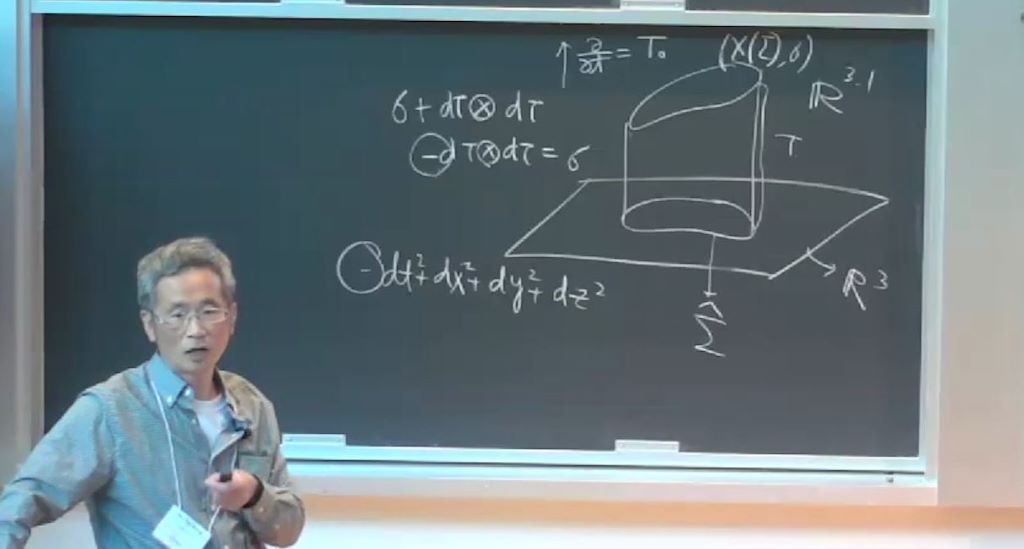 ↑ ∂/∂t = T₀
(X(Σ), σ)
ℝ³·¹
σ + dτ ⊗ dτ
− dτ ⊗ dτ = σ
τ
− dt² + dx² + dy² + dz²
ℝ³
Σ̂